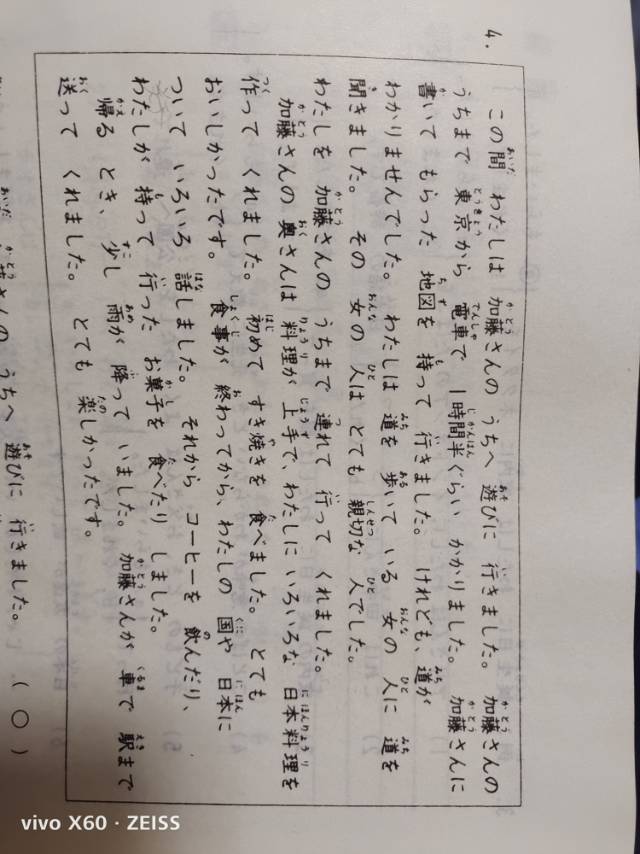 4. この間 わたしは 加藤さんの うちへ 遊びに 行きました。 加藤さんの
うちまで 東京から 電車で 1時間半ぐらい かかりました。 加藤さんに
書いて もらった 地図を 持って 行きました。けれども、道が
わかりませんでした。わたしは 道を 歩いて いる 女の 人に 道を
聞きました。 その 女の 人は とても 親切な 人でした。
わたしを 加藤さんの うちまで 連れて 行って くれました。
加藤さんの 奥さんは 料理が 上手で、わたしに いろいろな 日本料理を
作って くれました。 初めて すき焼きを 食べました。 とても
おいしかったです。 食事が 終わってから、わたしの 国や 日本に
ついて いろいろ 話しました。 それから コーヒーを 飲んだり、
わたしが 持って 行った お菓子を 食べたり しました。
帰る とき、少し 雨が 降って いました。 加藤さんが 車で 駅まで
送って くれました。 とても 楽しかったです。
さんの うちへ 遊びに 行きました。 (○)
vivo X60 · ZEISS